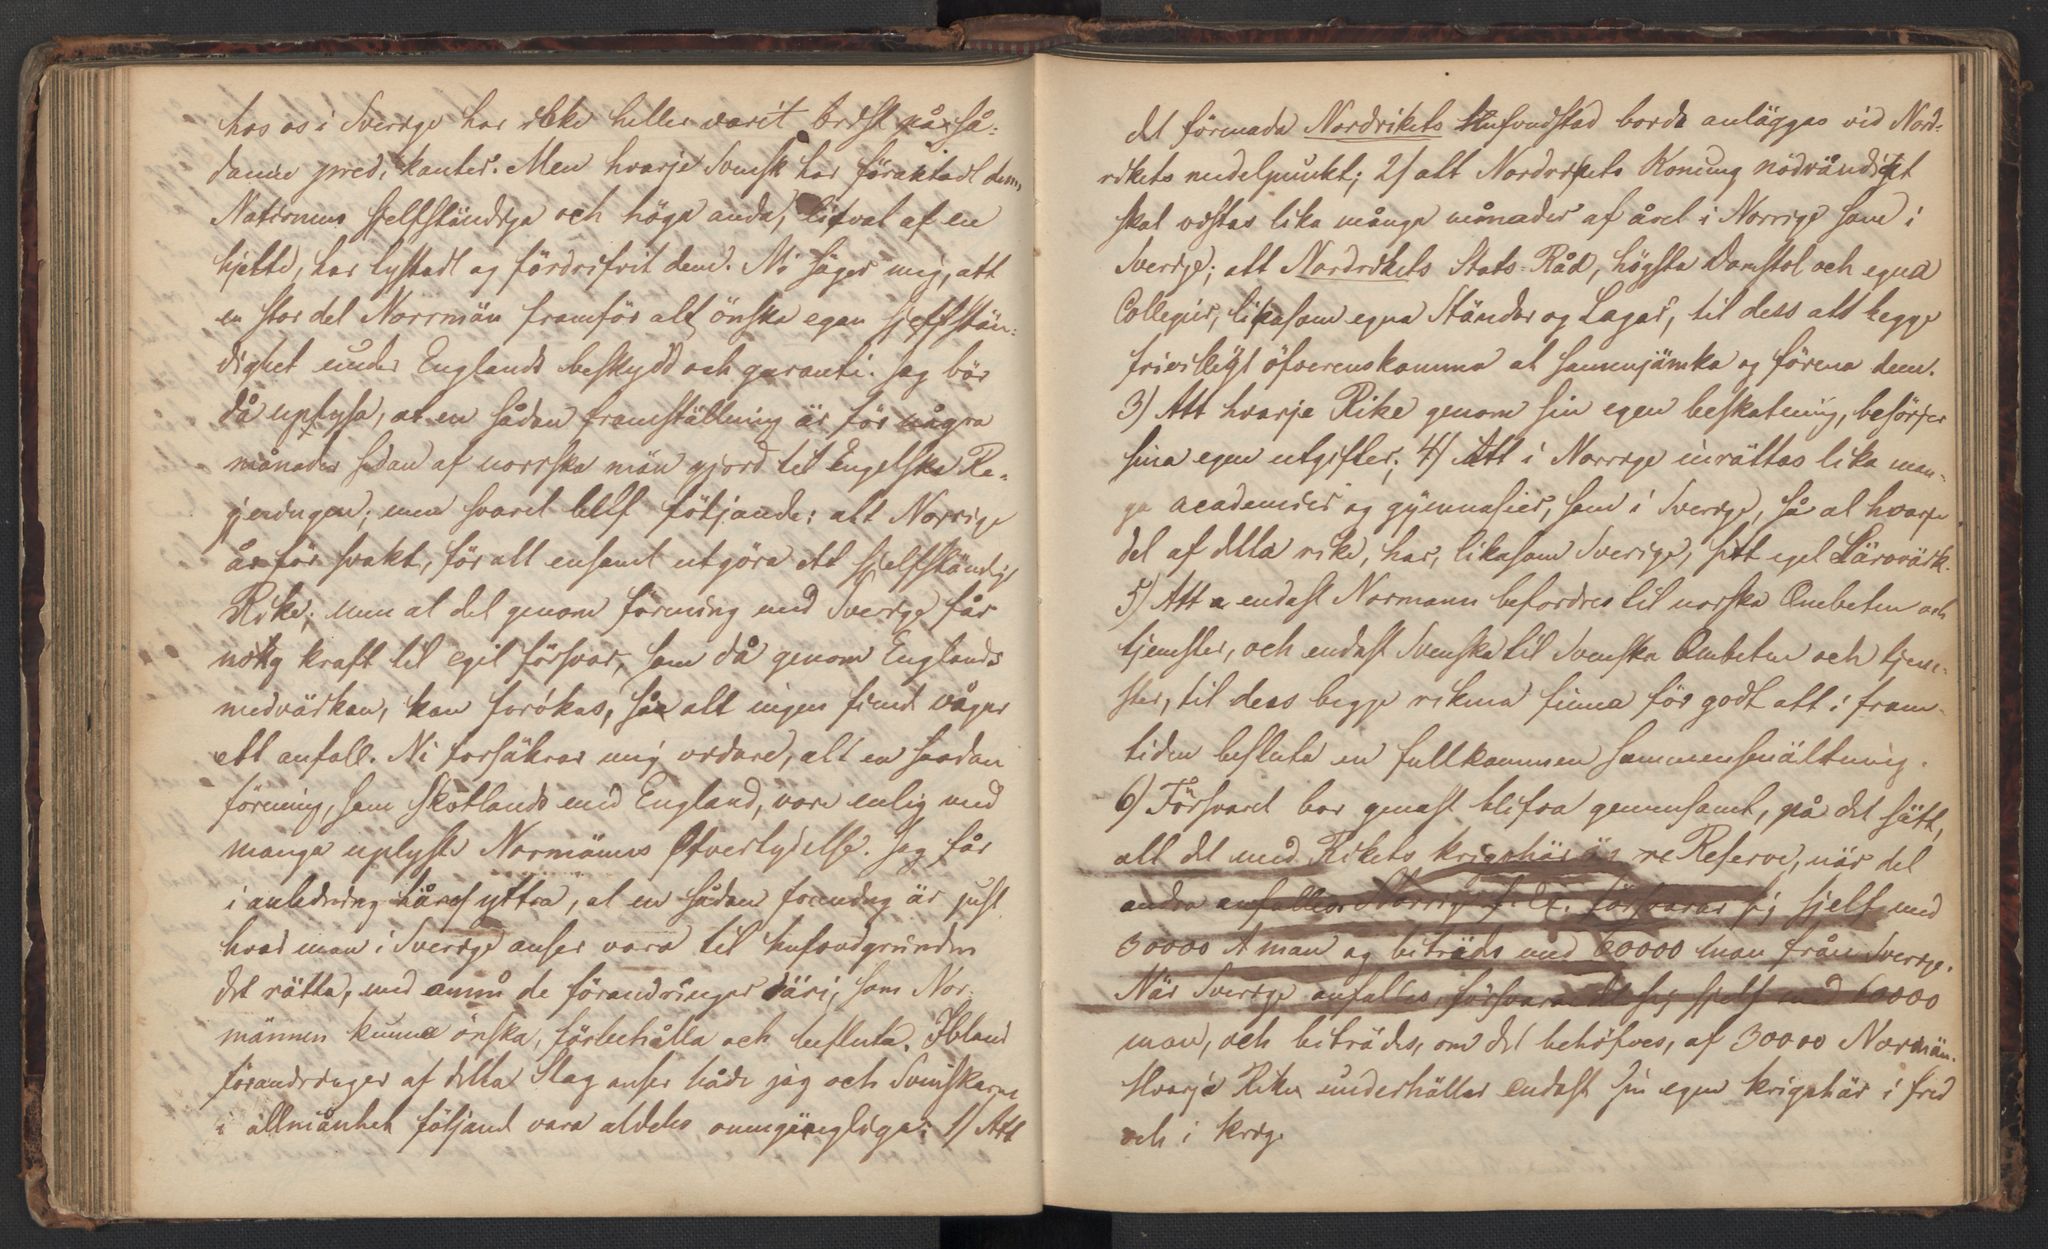 hos os i Sverrge har ikke heller varit brist på så-
danne predikanter. Men hvarje Svensk har föraktadt dem,
Nationens sjelfständiga och höga anda, lifval af en
hjette, har tystadt og fördrifvit dem. Ni säger mig, att
en stor del Norrmän framför alt önska egen sjelfstän-
dighet under Englands beskydd och garanti. Jag bör
då uplysa, at en sådan framställning är för några
månader sedan af norrska män gjord til Engelska Re-
gjeringen; men svaret blef följande: att Norrige
är för svakt, för att ensamt utgöra ett sjelfständigt
Rike, men at det genom förening med Sverrge får
nog kraft til eget försvar, som då genom Englands
medvärkan, kan forökas, så att ingen fiend våger
ett anfall. Ni forsäkrar mig vidare, att en saadan
förening, som Skotlands med England, vore enlig med
mange uplyste Normänns Öfvertydelse. Jag får
i anledning häraf yttra, at en sådan forening är just
hvad man i Sverrge anser vara til hufvudgrunden
det rätta, med ännu de förandringer däri, som Nor-
männen kunna önska, förbehålla och besluta. Ibland
förandringer af detta Slag anser både jag och Svenskarne
i allmänhet följand vara aldeles oumgängliga: 1) Att
det förenada Nordrikets Hufvudstad borde anlägges vid Nord-
rikets medelpunkt; 2) att Nordrikets Konung nödvändigt
skal vistas lika månge månader af året i Norrige som i
Sverrge; att Nordrikets Stats-Råd, högsta Domstol och egna
Collegier, likasom egna Ständer og Lagar, til dess att begge
frivilligt öfverenskomma at sammenjämka og förena dem.
3) Att hvarje Rike genom sin egen beskatning, besörjer
sina egen utgifter; 4) Att i Norrge inrättas lika man-
ga academier og gymnasier, som i Sverrge, så at hvarje
del af detta rike, har, likasom Sverige, sitt eget Lärovärk.
5) Att endast Normann befordres til norska Ombeten och
tjenster, och endast Svenska til Svenska Ombeten och tjen-
ster, til dess begge rikena finna för godt att i fram-
tiden besluta en fullkommen sammensmältning.
6) Försvaret bor genast blifva gemensamt, på det sätt,
att det med Rikets krigshär är Reserve, när det
andra anfalles. Norrige försvarar sig sjelf med
30000 man og biträds med 60000 man från Sverrge.
När Sverrge anfalles, försvarar det sig sjelf med 60000
man, och biträdes, om det behöfves, af 30000 Normän.
Hvarje Rike underhåller endast sin egen krigshär i fred
och i krig.